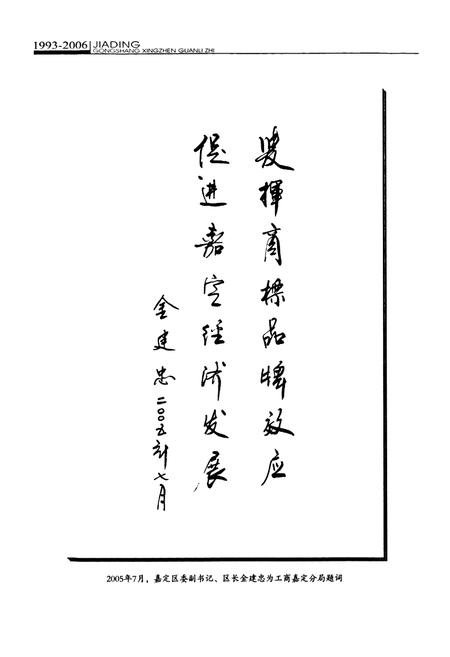 1993-2006 JIADING
GONGSHANG XINGZHEN GUANLI ZHI
发揮商标品牌效应
促进嘉定经济发展
金建忠二〇〇五年七月
2005年7月，嘉定区委副书记、区长金建忠为工商嘉定分局题词